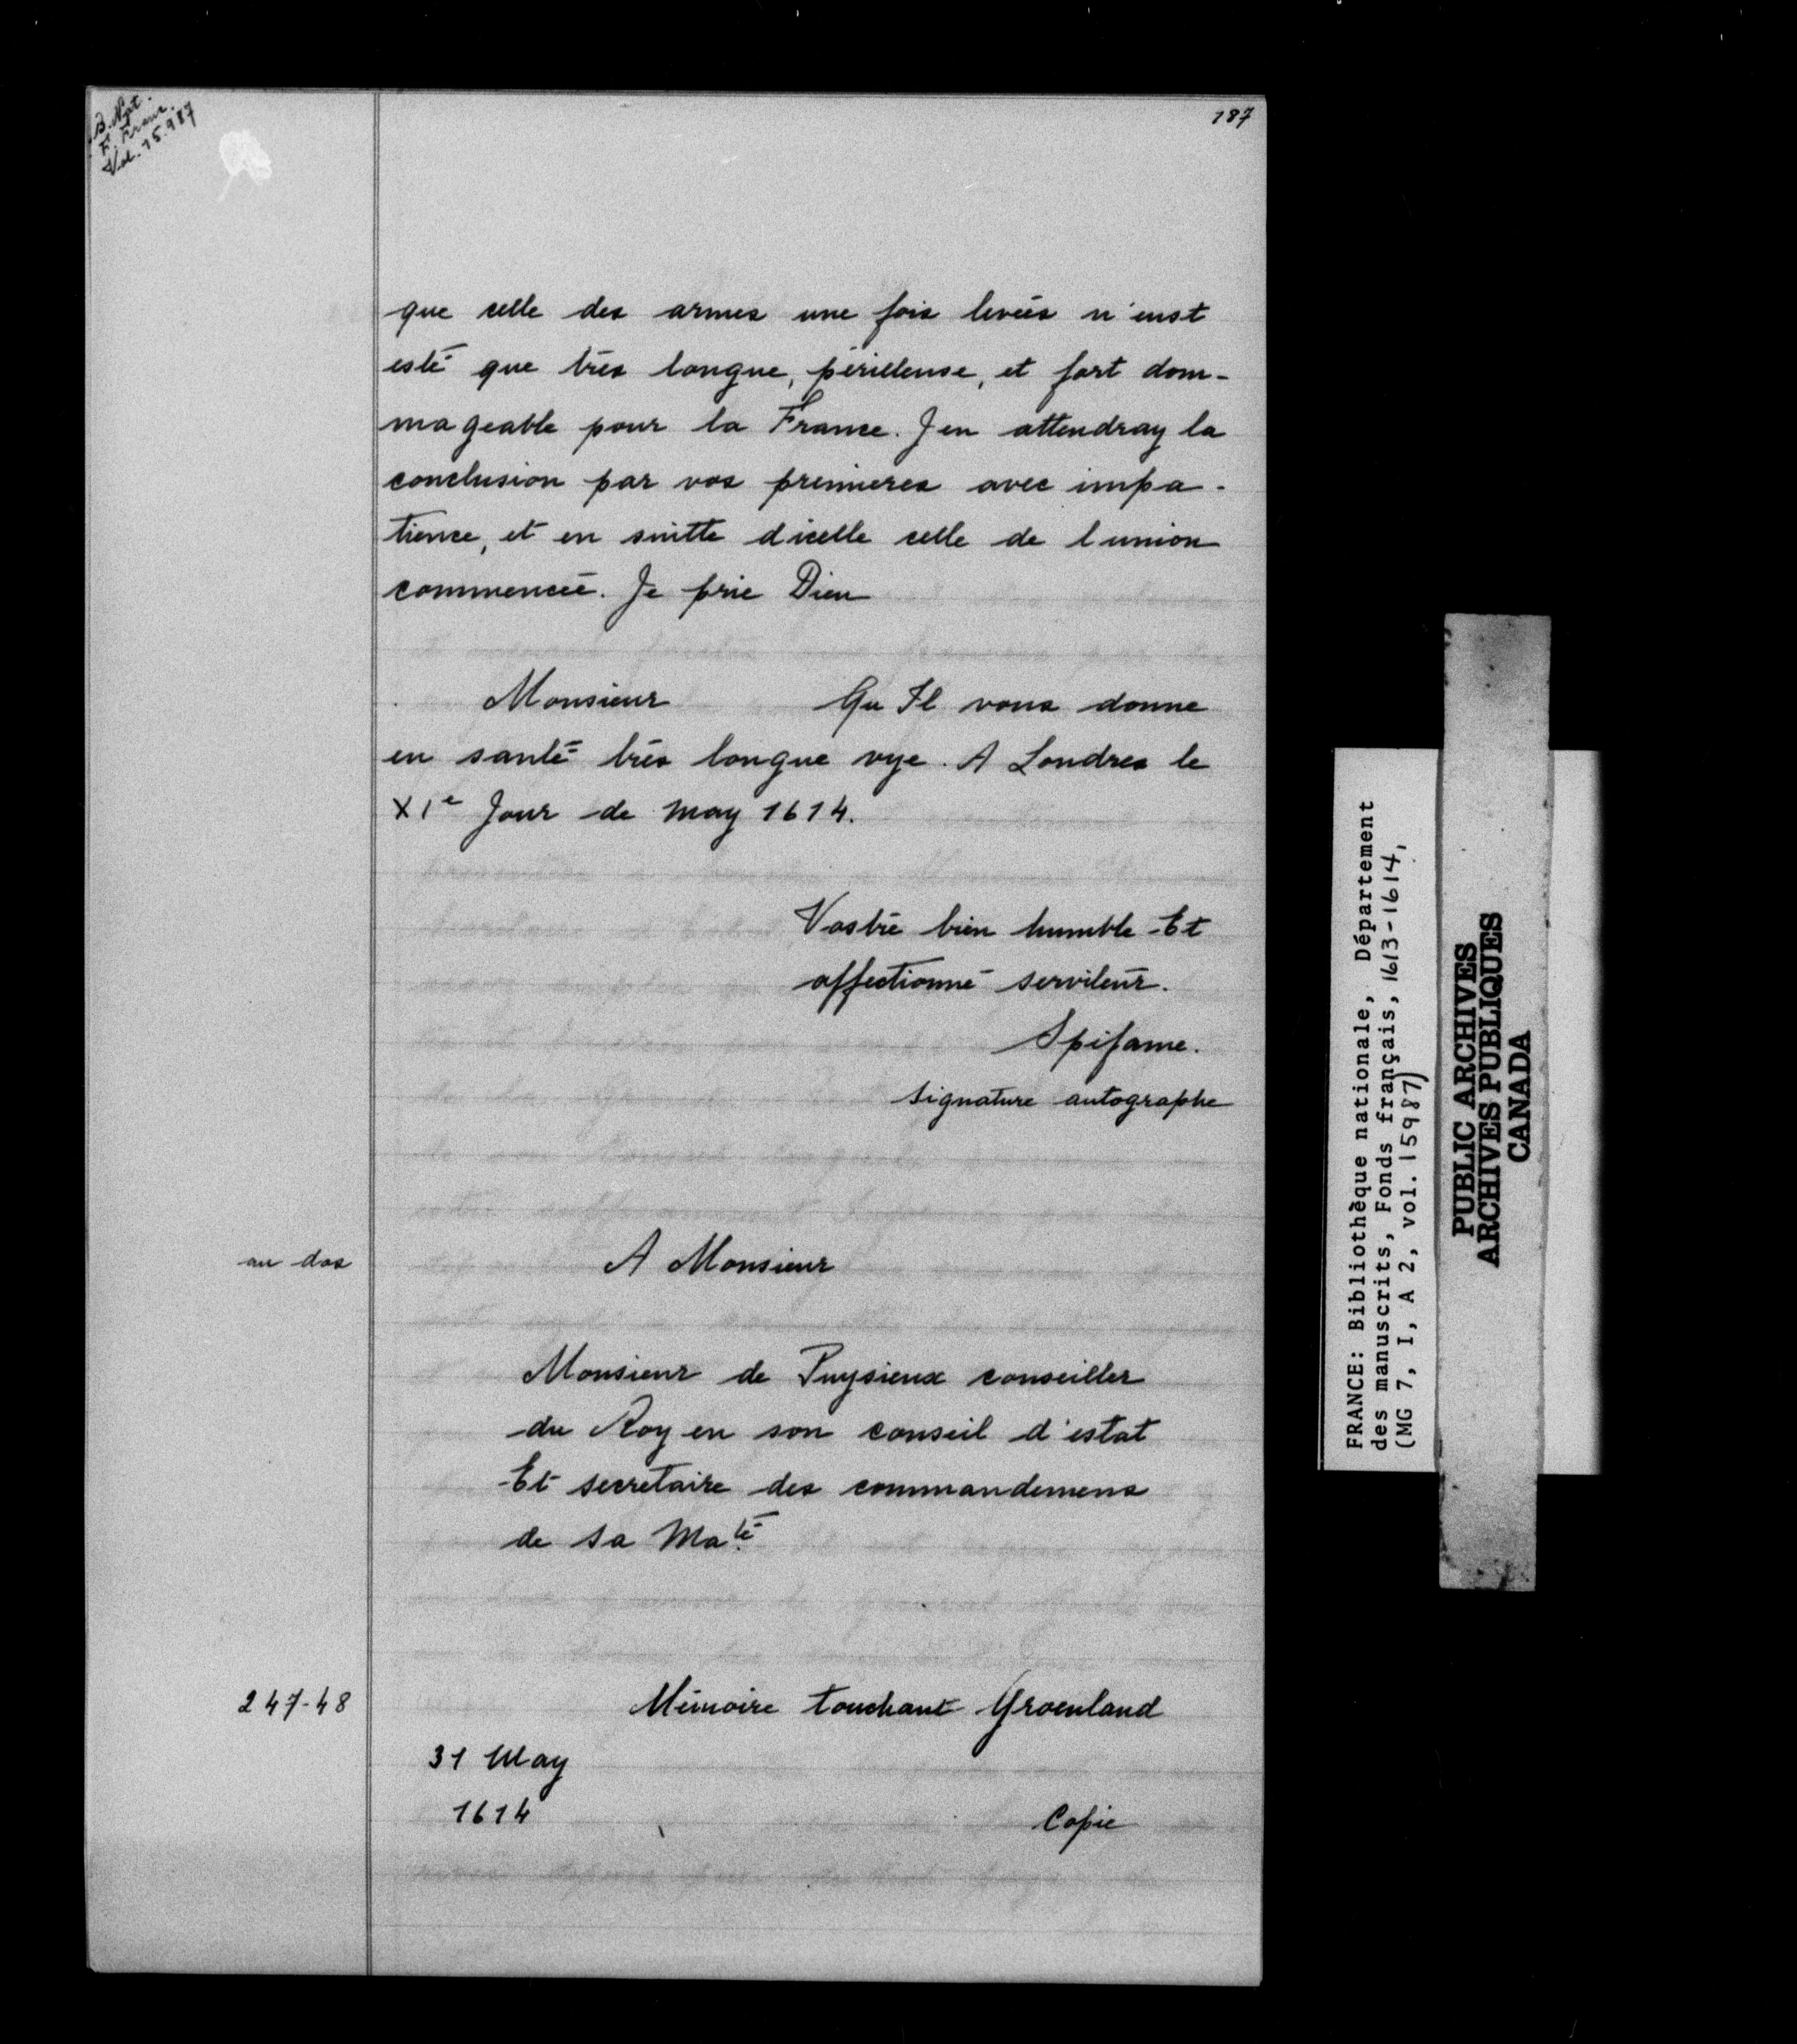 B. Nat.
F. Franc.
Vol. 15.987
187
que celle des armes une fois levées n'eust
esté que très longue, périlleuse, et fort dom-
mageable pour la France. J en attendray la
conclusion par vos premieres avec impa-
tience, et en suitte dicelle celle de l union
commencée. Je prie Dieu
Monsieur Qu Il vous donne
en santé très longue vye. A Londres le
XIe Jour de may 1614.
Vostre bien humble Et
affectionné serviteur.
Spifame.
signature autographe
au dos
A Monsieur
Monsieur de Puysieux conseiller
du Roy en son conseil d'estat
Et secretaire des commandemens
de sa Maté.
247-48
Mémoire touchant Groenland
31 May
1614
Copie
FRANCE: Bibliothèque nationale, Département
des manuscrits, Fonds français, 1613-1614,
(MG 7, I, A 2, vol. 15987)
PUBLIC ARCHIVES
ARCHIVES PUBLIQUES
CANADA